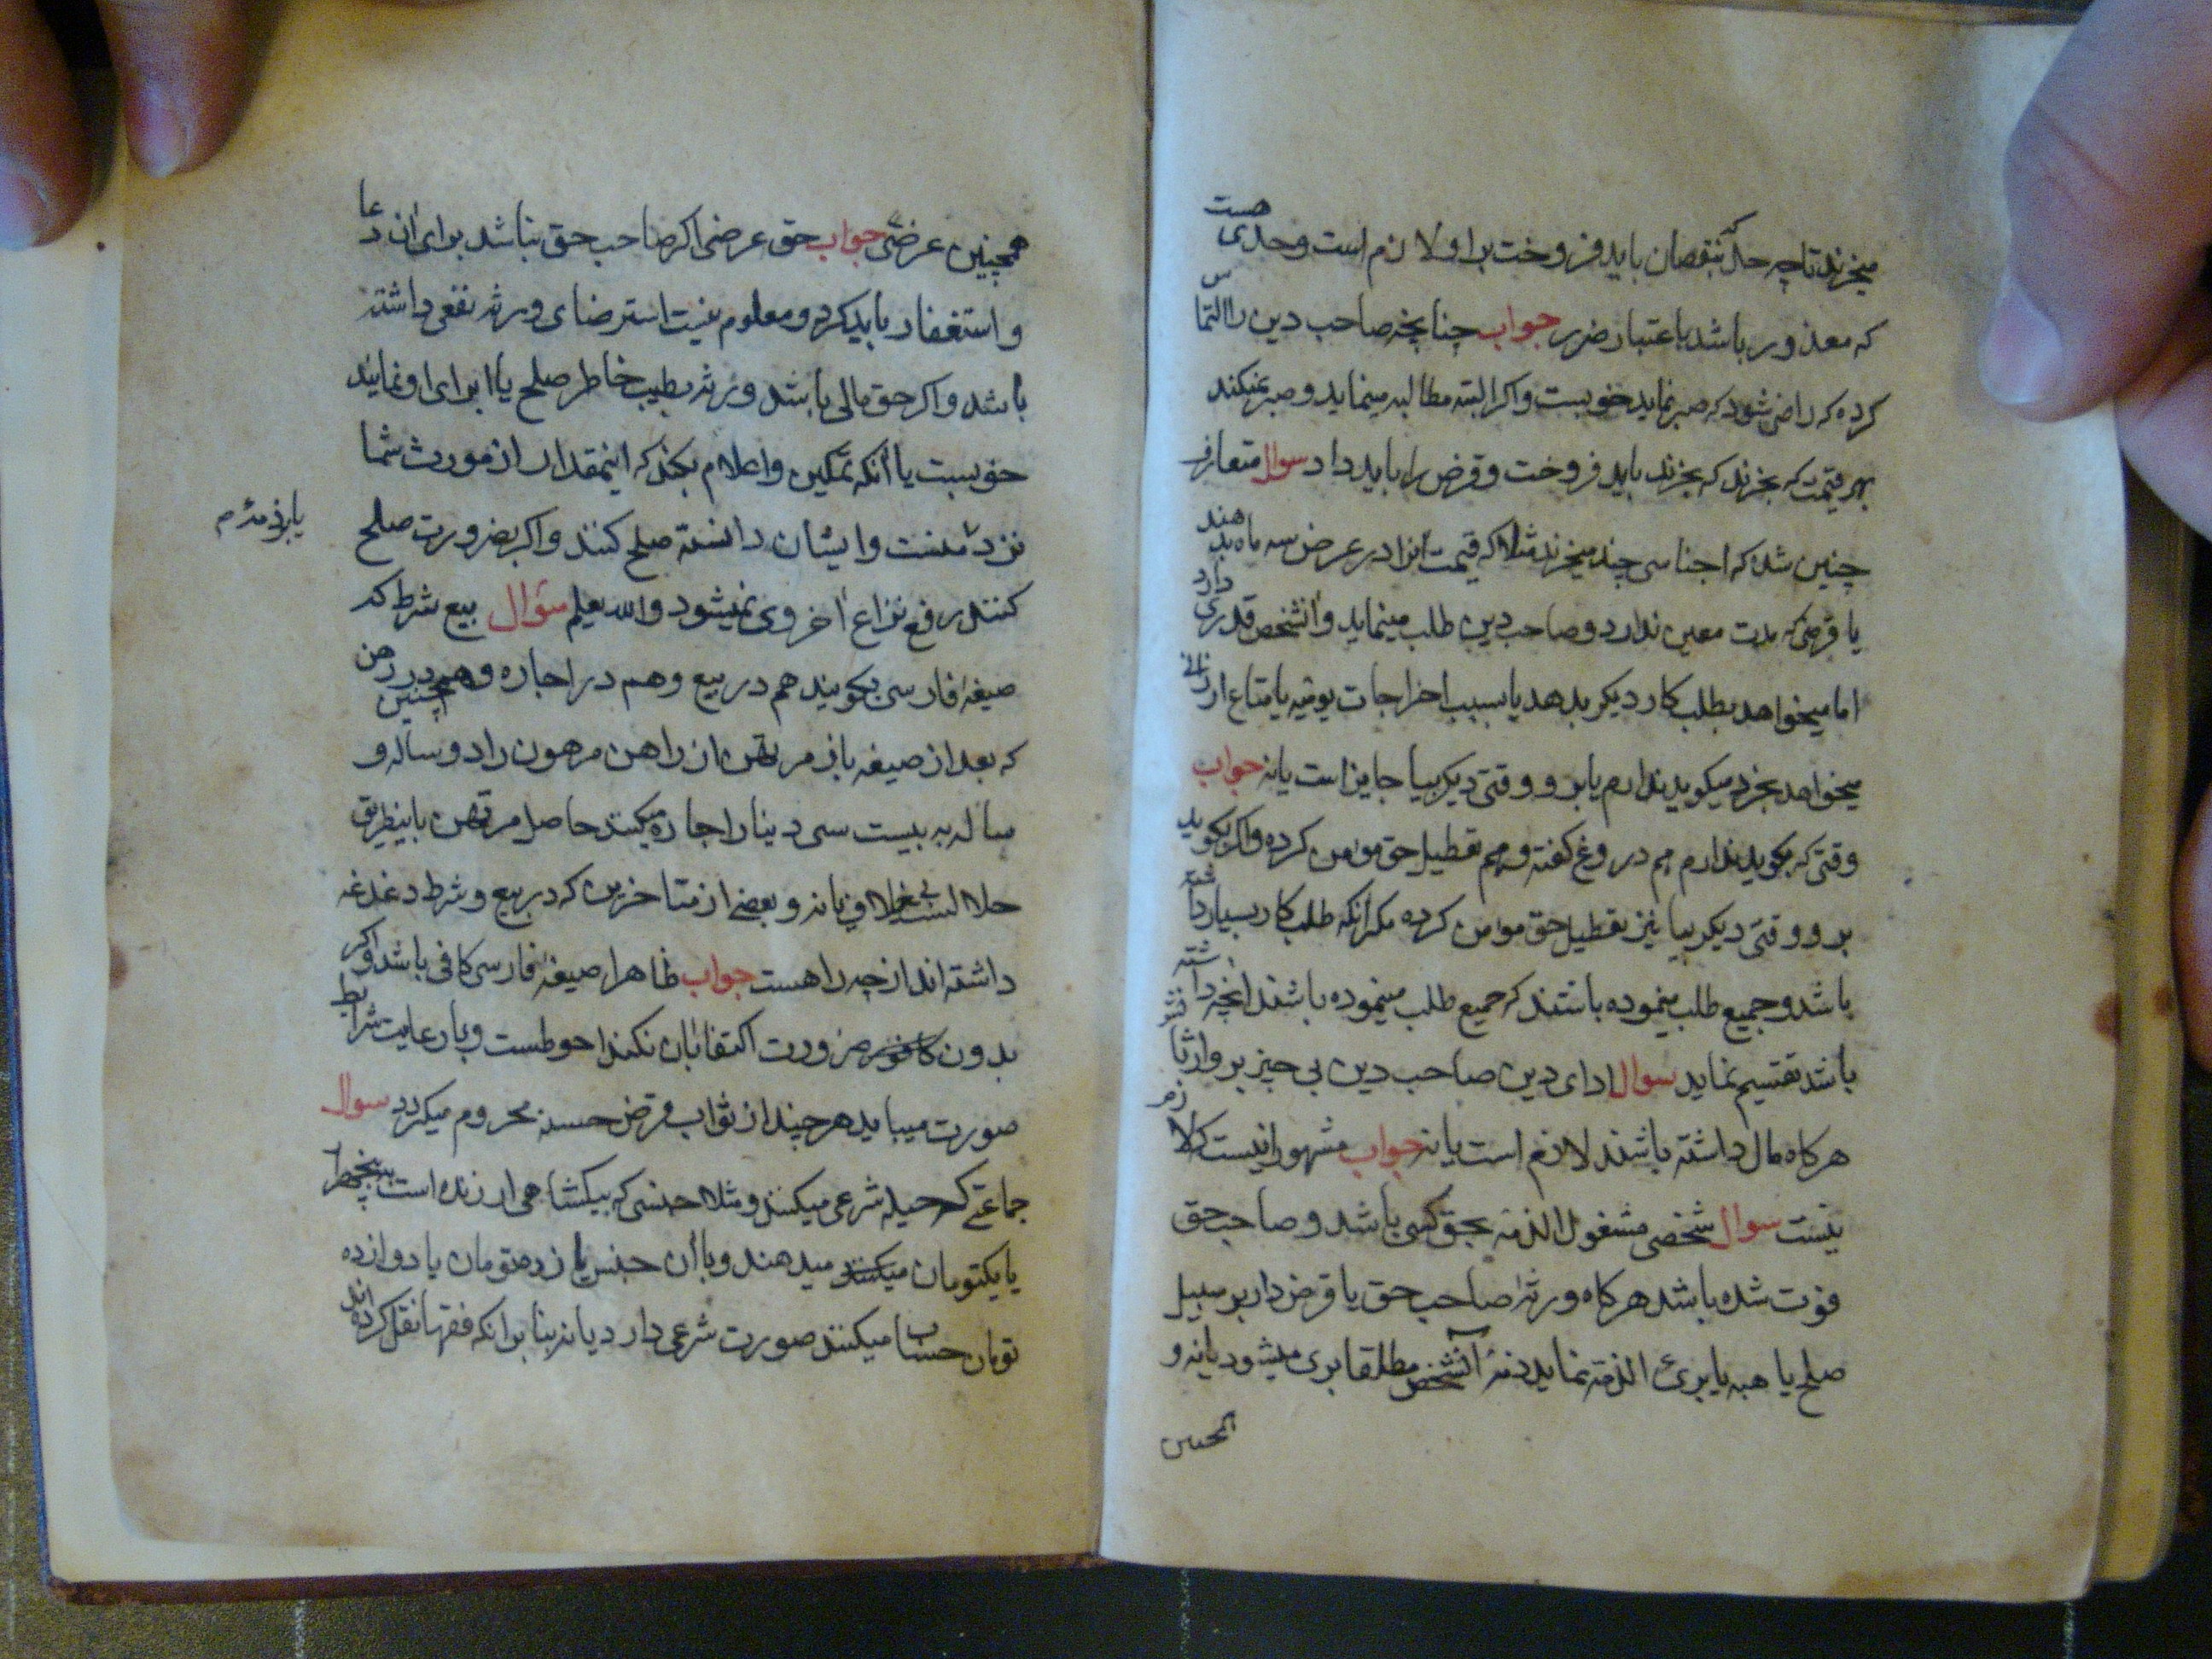 میخرند تا چه حد بنقصان باید فروخت بر او لازم است وحدی هست
که معذور باشد باعتبار ضرر جواب چنانچه صاحب دین را التماس
کرده که راضی شود که صبر نماید خوبست واکر البته مطالبه مینماید و صبر نمیکند
بهر قیمت که بخرند که بخرند باید فروخت وقرض را باید داد سوال متعارف
چنین شده که اجناسی چند میخرند مثلا که قیمت انرا در عرض سه ماه بدهند
یا قرضی که مدت معین ندارد و صاحب دین طلب مینماید وانشخص قدری دارد
اما میخواهد بطلب کار دیکر بدهد یا بسبب اخراجات یومیه یا متاع ارزانی
میخواهد بخرد میکوید ندارم یا برو و وقتی دیکر بیا جایز است یا نه جواب
وقتی که بکوید ندارم هم دروغ کفته وهم تعطیل حق مومن کرده واکر بکوید
برو وقتی دیکر بیا نیز تعطیل حق مومن کرده مکر انکه طلب کار بسیار داشته
باشد و جمیع طلب مینموده باشند که جمیع طلب مینموده باشند انچه داشته
باشد تقسیم نماید سوال ادای دین صاحب دین بی چیز بر وارثانش
هرکاه مال داشته باشند لازم است یا نه جواب مشهور انیست که لازم
نیست سوال شخصی مشغول الذمه بحق کسی باشد و صاحب حق
فوت شده باشد هرکاه ورثه صاحب حق یا قرض دار بر سبیل
صلح یا هبه یا برئ الذمه نماید ذمه آنشخص مطلقا بری میشود یا نه و
همچنین
همچنین عرضی جواب حق عرضی اکر صاحب حق نباشد برای ان دعا
و استغفار باید کرد و معلوم نیست استرضای ورثه نفعی داشته
باشد واکر حق مالی باشد و ورثه بطیب خاطر صلح یا ابرای او نمایند
خوبست یا آنکه تمکین واعلام بکند که اینمقدار از مورث شما
نزد منست وایشان دانسته صلح کنند واکر بضرورت صلح
کنند رفع نزاع اخروی نمیشود والله یعلم سؤال بیع شرط که
صیغه فارسی بکویند هم در بیع وهم در اجاره وهمچنین در رهن
که بعد از صیغه باز مرتهن از راهن مرهون را دو ساله و
ساله به بیست سی دینار اجاره میکنند حاصل مرتهن باینطریق
حلال است یا نه و بعضی از متاخرین که در بیع و شرط دغدغه
داشته اند از چه راهست جواب ظاهرا صیغه فارسی کافی باشد واکر
بدون ضرورت اکتفا بان نکنند احوطست وبا رعایت شرایط
صورت میباید هرچند از ثواب قرض حسنه محروم میکردد سوال
جماعتی که حیله شرعی میکنند و مثلا جنسی که بیکشاهی ارزنده است
یا یکتومان میکنند میدهند وبا آن جنس یازده تومان یا دوازده
تومان حساب میکنند صورت شرعی دارد یا نه بنابر انکه فقها نقل کرده اند